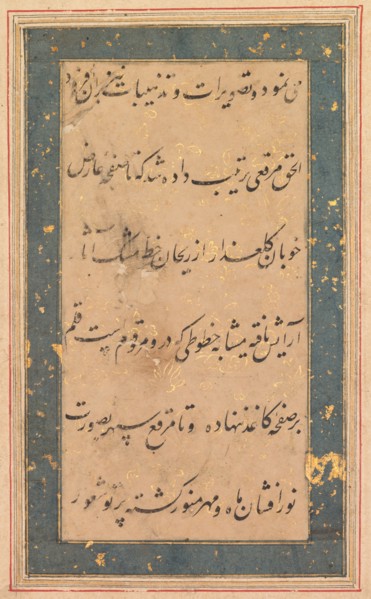 می نمود و تصویرات و تذهیبات نیز بران افزود
الحق مرقعی ترتیب داده شد که تا صفحه عارض
خوبان گلعذار از ریحان خط مشک آسا
آرایش یافته مشابه خطوطی که درو مرقوم است قلم
بر صفحه کاغذ نهاده و تا مرقع سپهر بصورت
نور افشان ماه و مهر منور گشته پرتو شعور